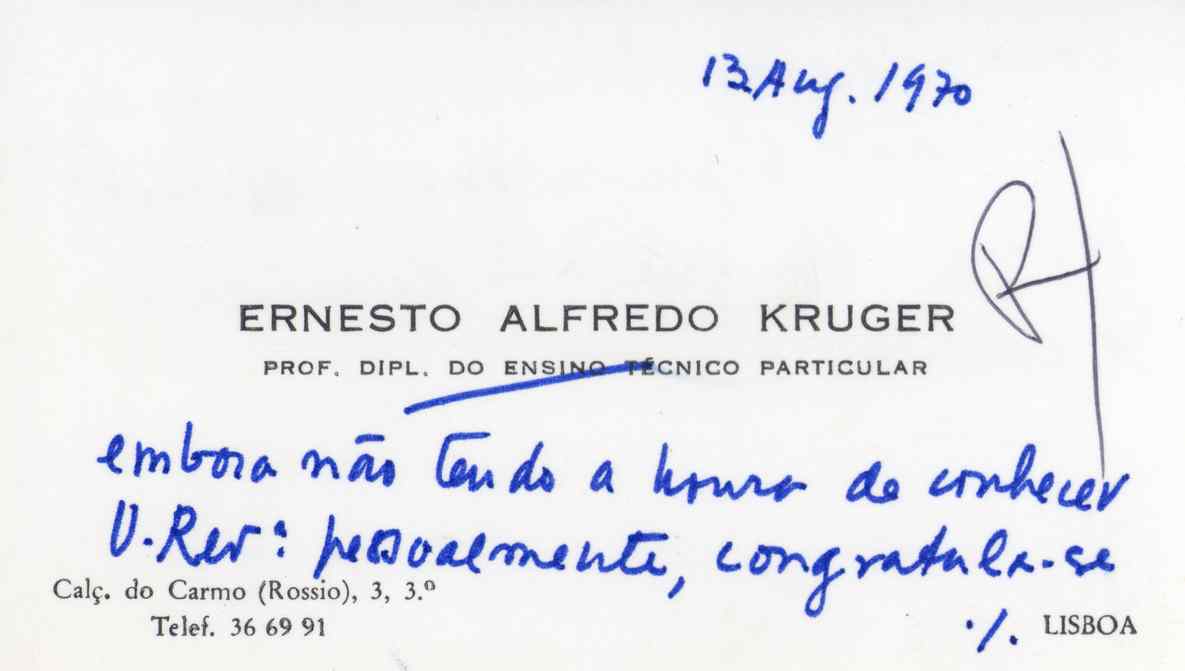 13 Aug. 1970
R
ERNESTO ALFREDO KRUGER
PROF. DIPL. DO ENSINO TÉCNICO PARTICULAR
embora não tendo a honra de conhecer
V. Revª pessoalmente, congratula-se
Calç. do Carmo (Rossio), 3, 3.º
Telef. 36 69 91
./. LISBOA